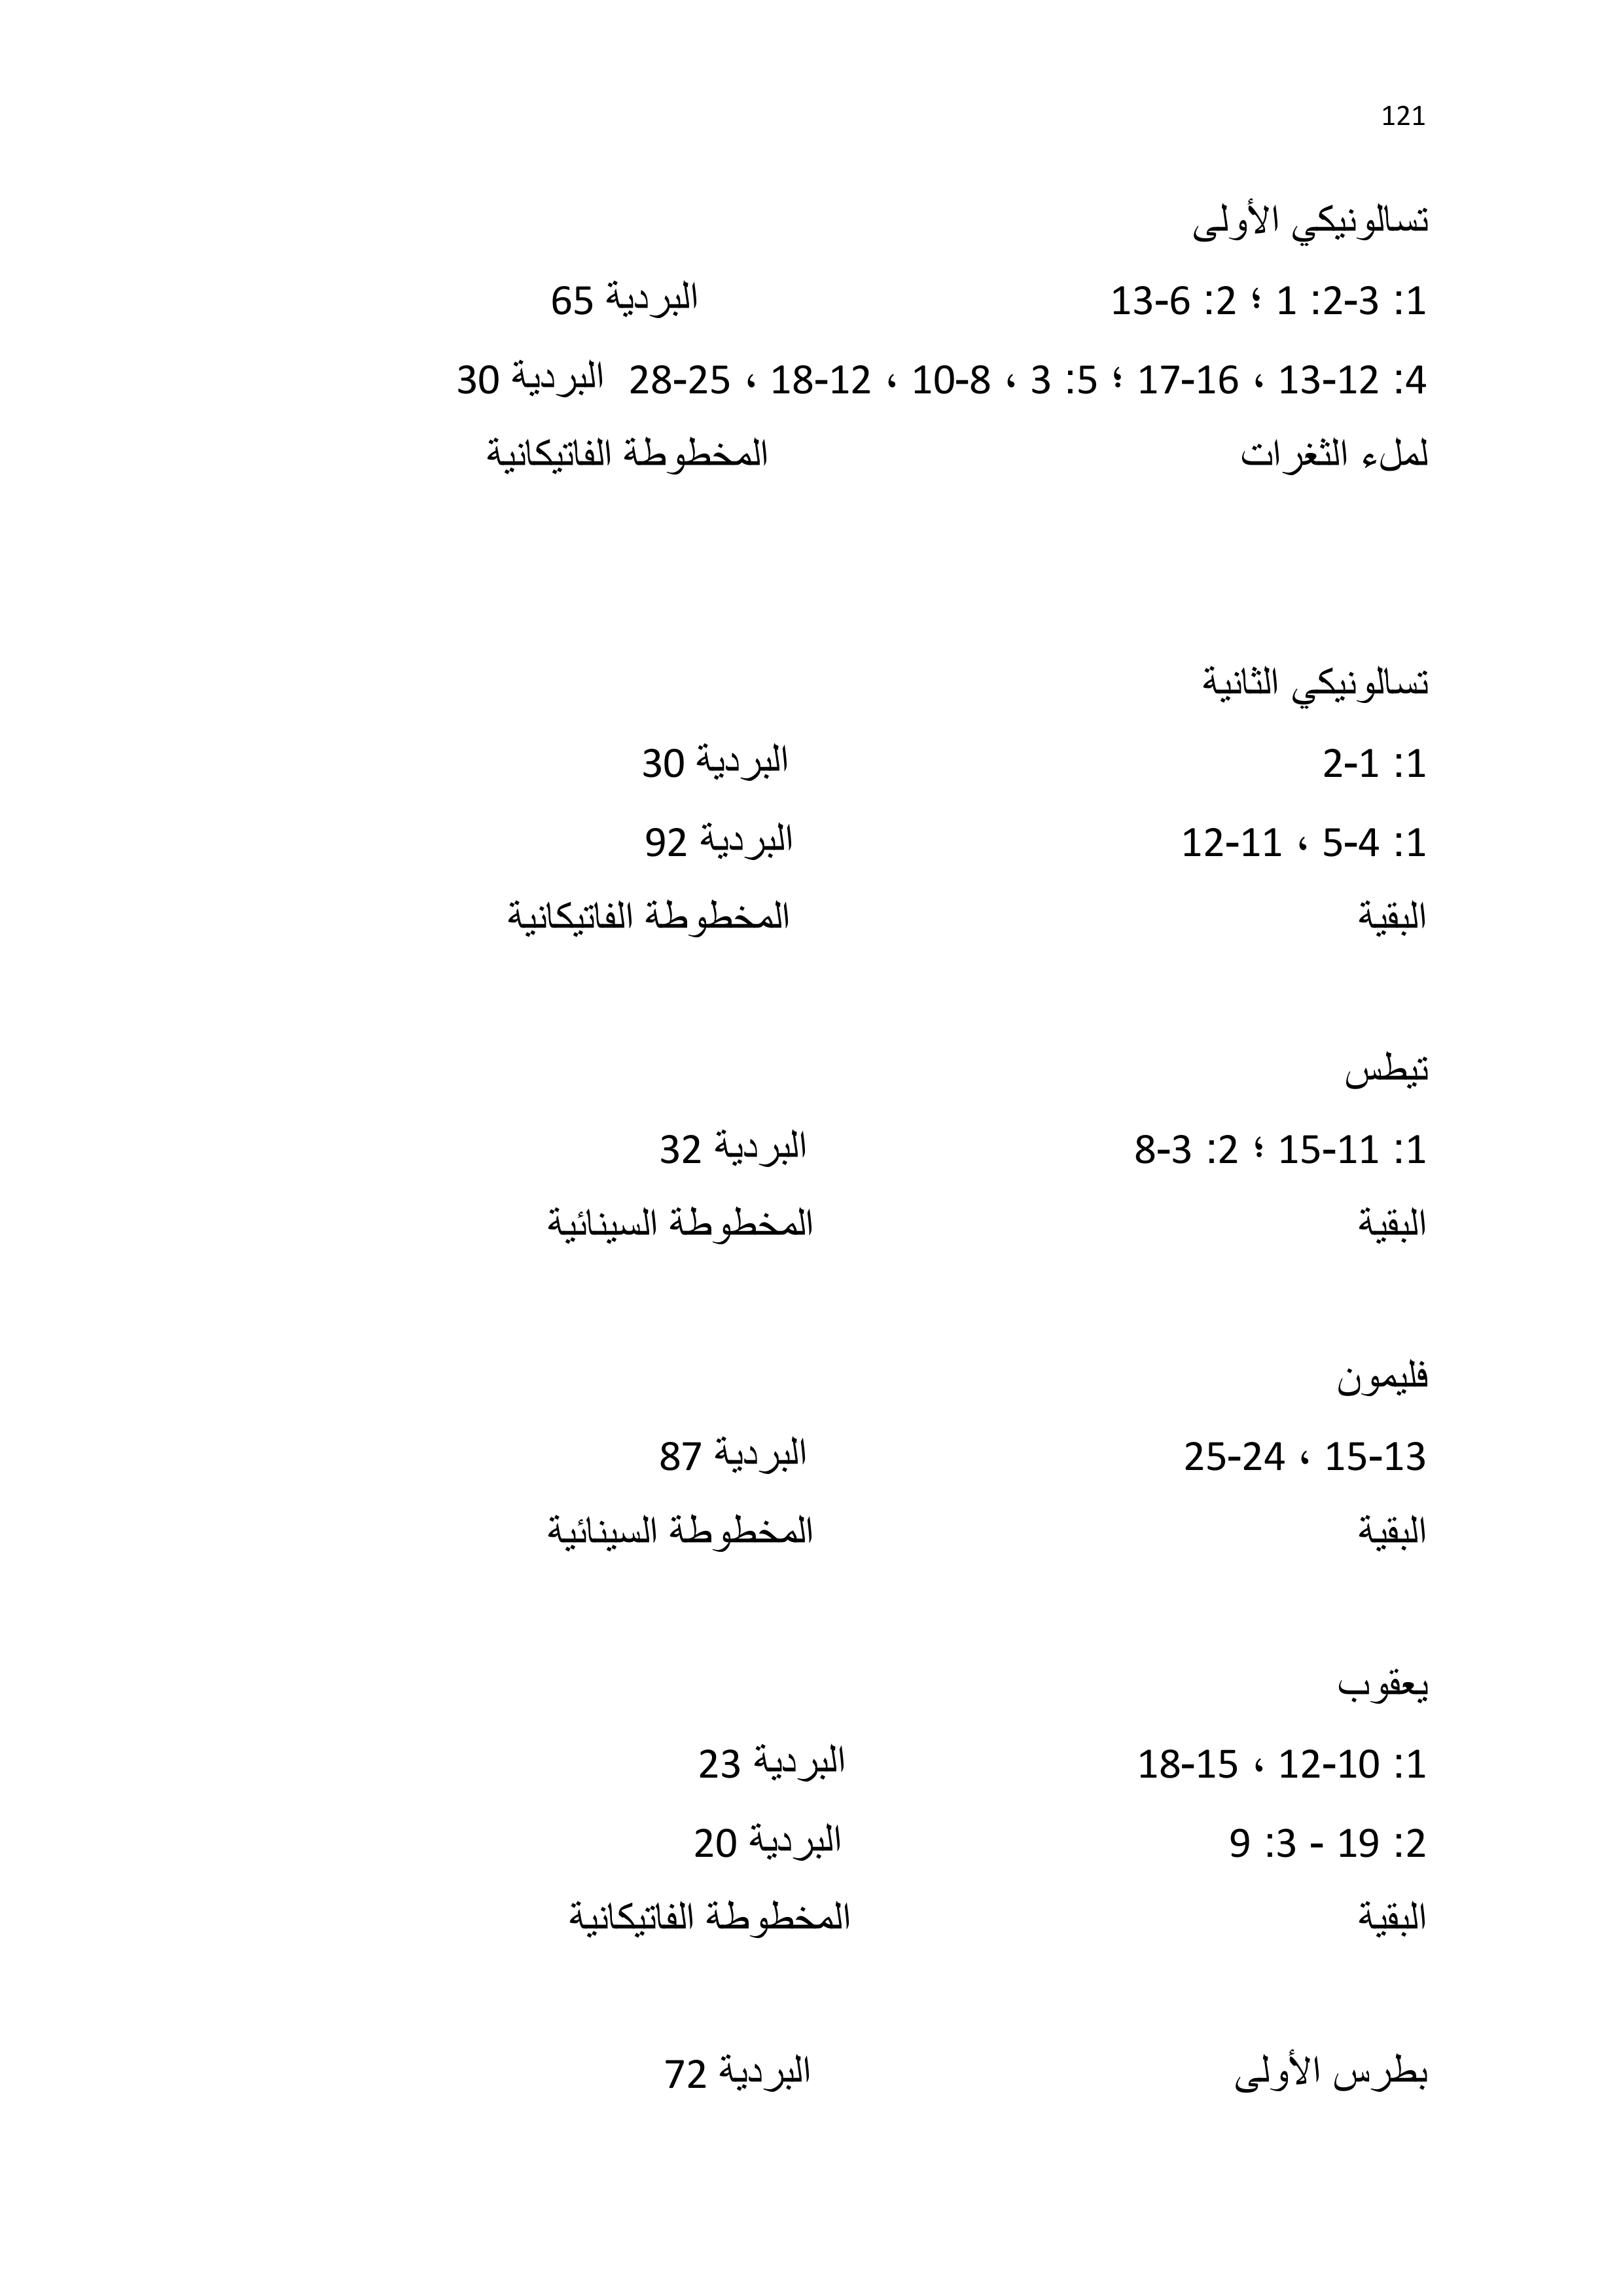 121
تسالونيكي الأولى
1: 3-2: 1 ؛ 2: 6-13 البردية 65
4: 12-13 ، 16-17 ؛ 5: 3 ، 8-10 ، 12-18 ، 25-28 البردية 30
لملء الثغرات المخطوطة الفاتيكانية
تسالونيكي الثانية
1: 1-2 البردية 30
1: 4-5 ، 11-12 البردية 92
البقية المخطوطة الفاتيكانية
تيطس
1: 11-15 ؛ 2: 3-8 البردية 32
البقية المخطوطة السينائية
فليمون
13-15 ، 24-25 البردية 87
البقية المخطوطة السينائية
يعقوب
1: 10-12 ، 15-18 البردية 23
2: 19 - 3: 9 البردية 20
البقية المخطوطة الفاتيكانية
بطرس الأولى البردية 72